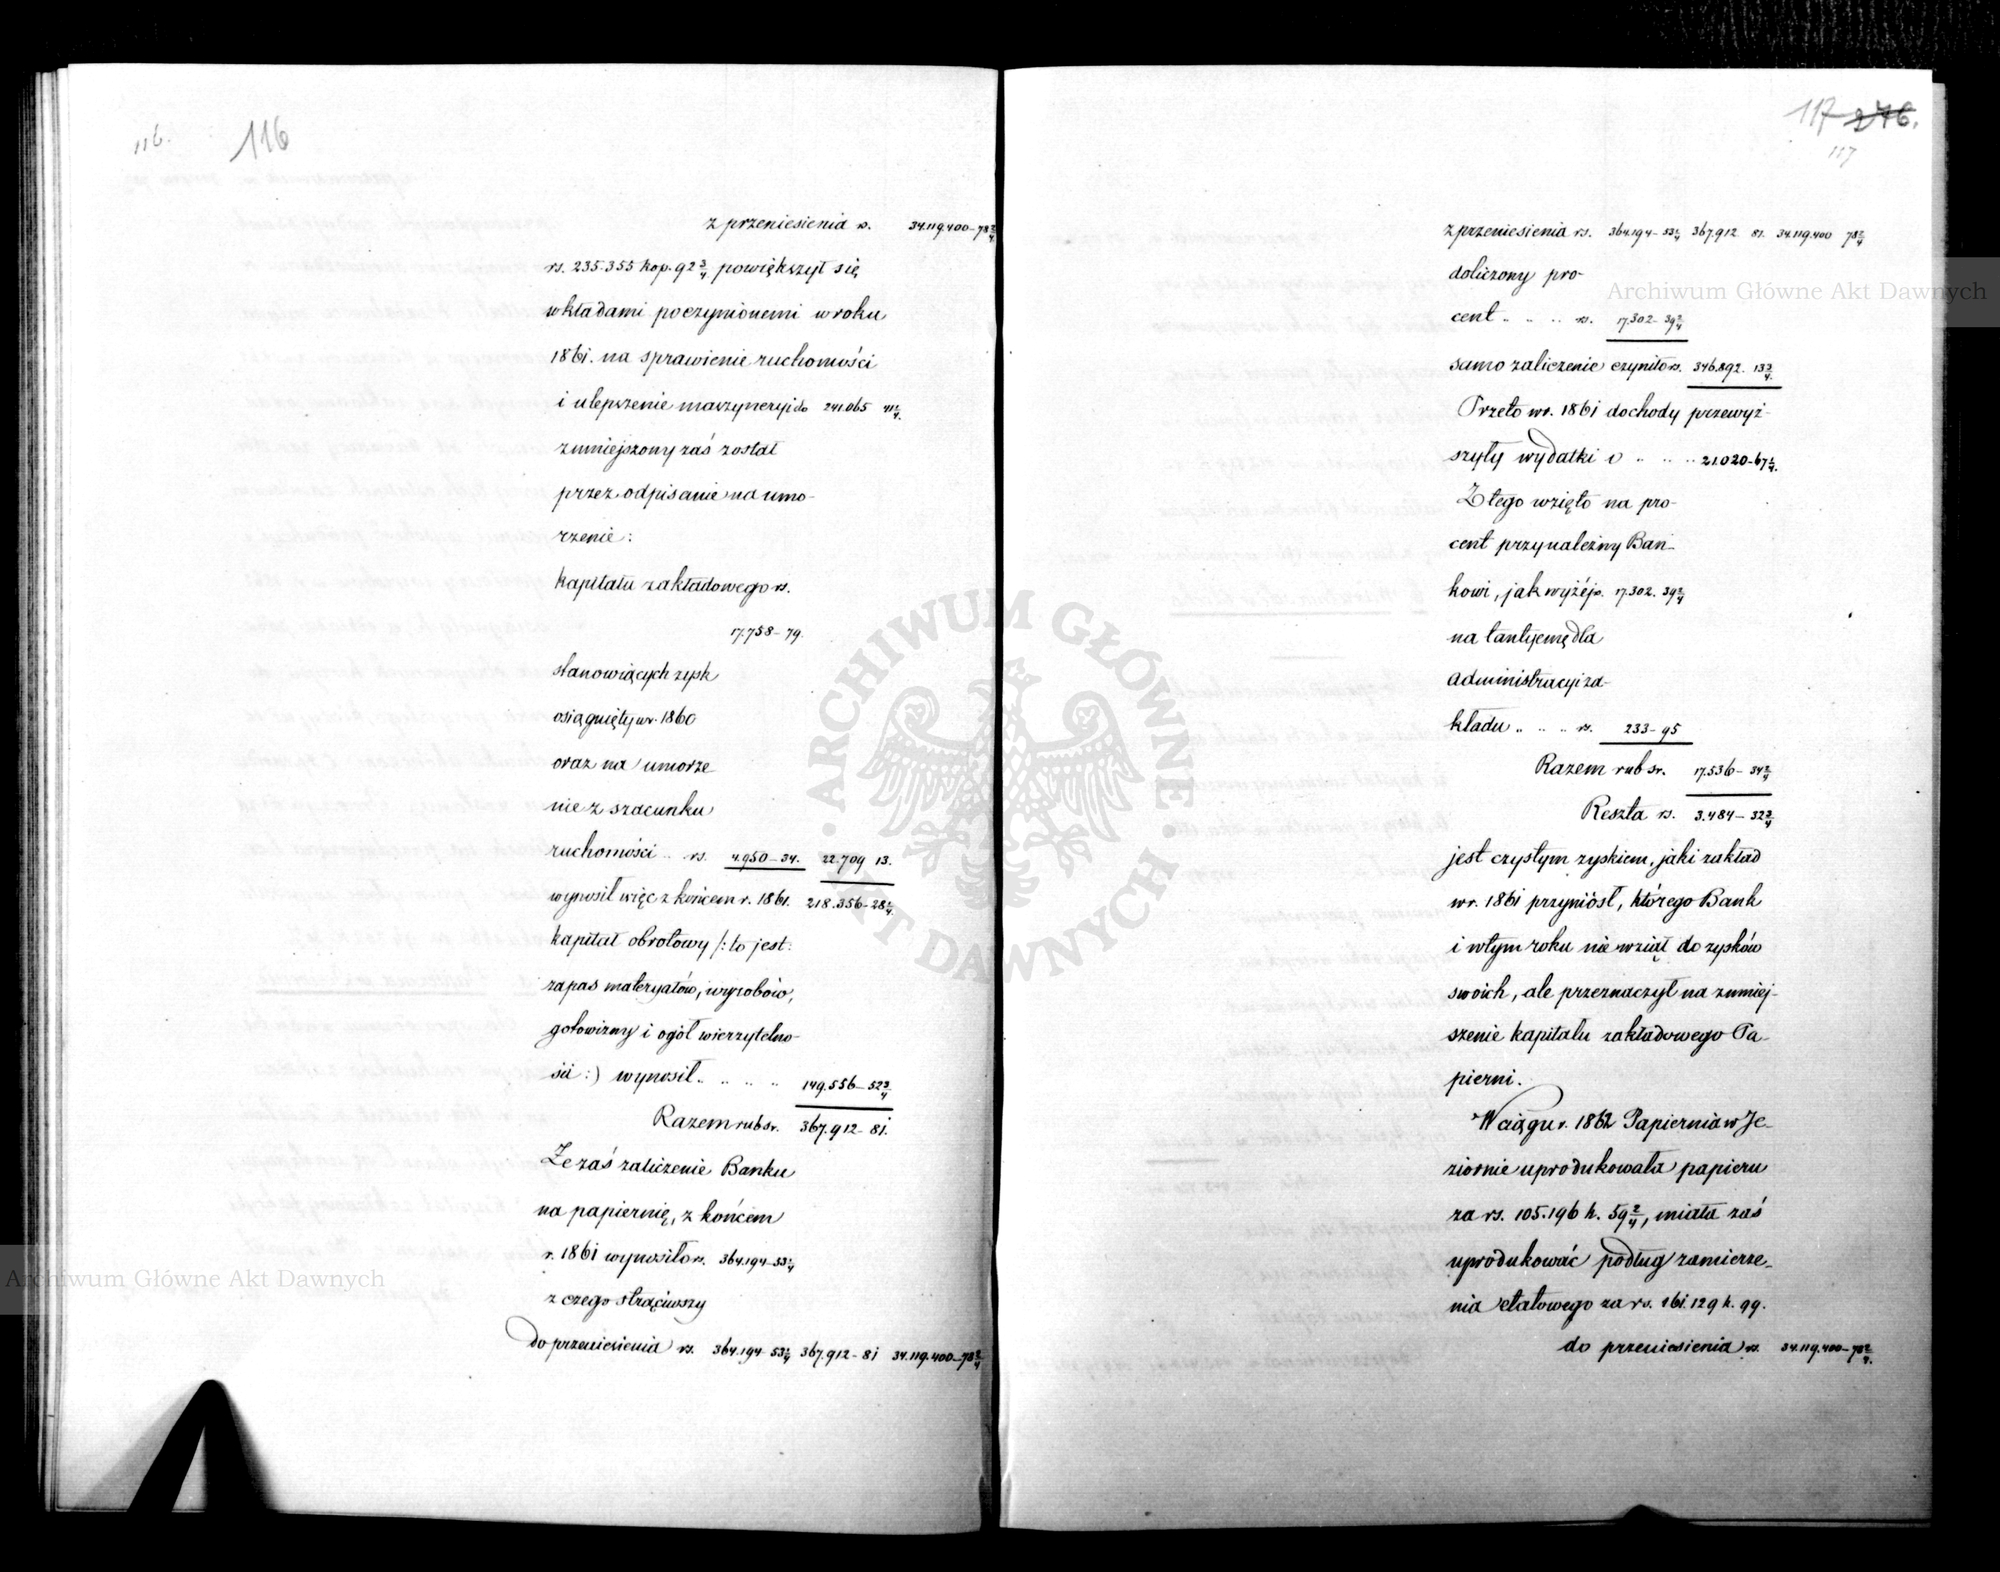 116.
116
z przeniesienia rs. 34.119.400-78 2/4
rs. 235.355 kop. 92 3/4 powiększył się
wkładami poczynionemi w roku
1861. na sprawienie ruchomości
i ulepszenie maszyneryi do 241.065 41 1/4.
zmniejszony zaś został
przez odpisanie na umo-
rzenie:
kapitału zakładowego rs.
17.758-79.
stanowiących zysk
osiągnięty w r. 1860
oraz na umorze
nie z szacunku
ruchomości .. rs. 4.950-34. 22.709 13.
wynosił więc z końcem r. 1861. 218.356-28 1/4.
kapitał obrotowy /: to jest:
zapas materyałów, wyrobów,
gotowizny i ogół wierzytelno-
ści :) wynosił .. .. .. .. 149.556-52 3/4
Razem rub sr. 367.912-81.
Że zaś zaliczenie Banku
na papiernię, z końcem
r. 1861 wynosiło rs. 364.194-53 1/4
z czego strąciwszy
do przeniesienia rs. 364.194-53 1/4 367.912-81 34.119.400-78 2/4
117 276.
117
z przeniesienia rs. 364.194-53 1/4 367.912 81. 34.119.400 78 2/4
doliczony pro-
cent .. .. .. rs. 17.302-39 2/4
samo zaliczenie czyniło rs. 346.892. 13 3/4.
Przeto w r. 1861 dochody przewyż-
szyły wydatki o .. .. .. 21.020-67 1/4.
Z tego wzięto na pro-
cent przynależny Ban-
kowi, jak wyżéj rs. 17.302. 39 2/4
na tantyemę dla
administracyi za-
kładu .. .. .. rs. 233-95
Razem rub sr. 17.536-34 2/4
Reszta rs. 3.484-32 3/4
jest czystym zyskiem, jaki zakład
w r. 1861 przyniósł, którego Bank
i w tym roku nie wziął do zysków
swoich, ale przeznaczył na zmniej-
szenie kapitału zakładowego Pa-
pierni.
W ciągu r. 1862 Papiernia w Je-
ziornie uprodukowała papieru
za rs. 105.196 k. 59 2/4, miała zaś
uprodukować podług zamierze-
nia etatowego za rs. 161.129 k. 99.
do przeniesienia rs. 34.119.400-78 2/4.
Archiwum Główne Akt Dawnych
Archiwum Główne Akt Dawnych
ARCHIWUM GŁÓWNE AKT DAWNYCH